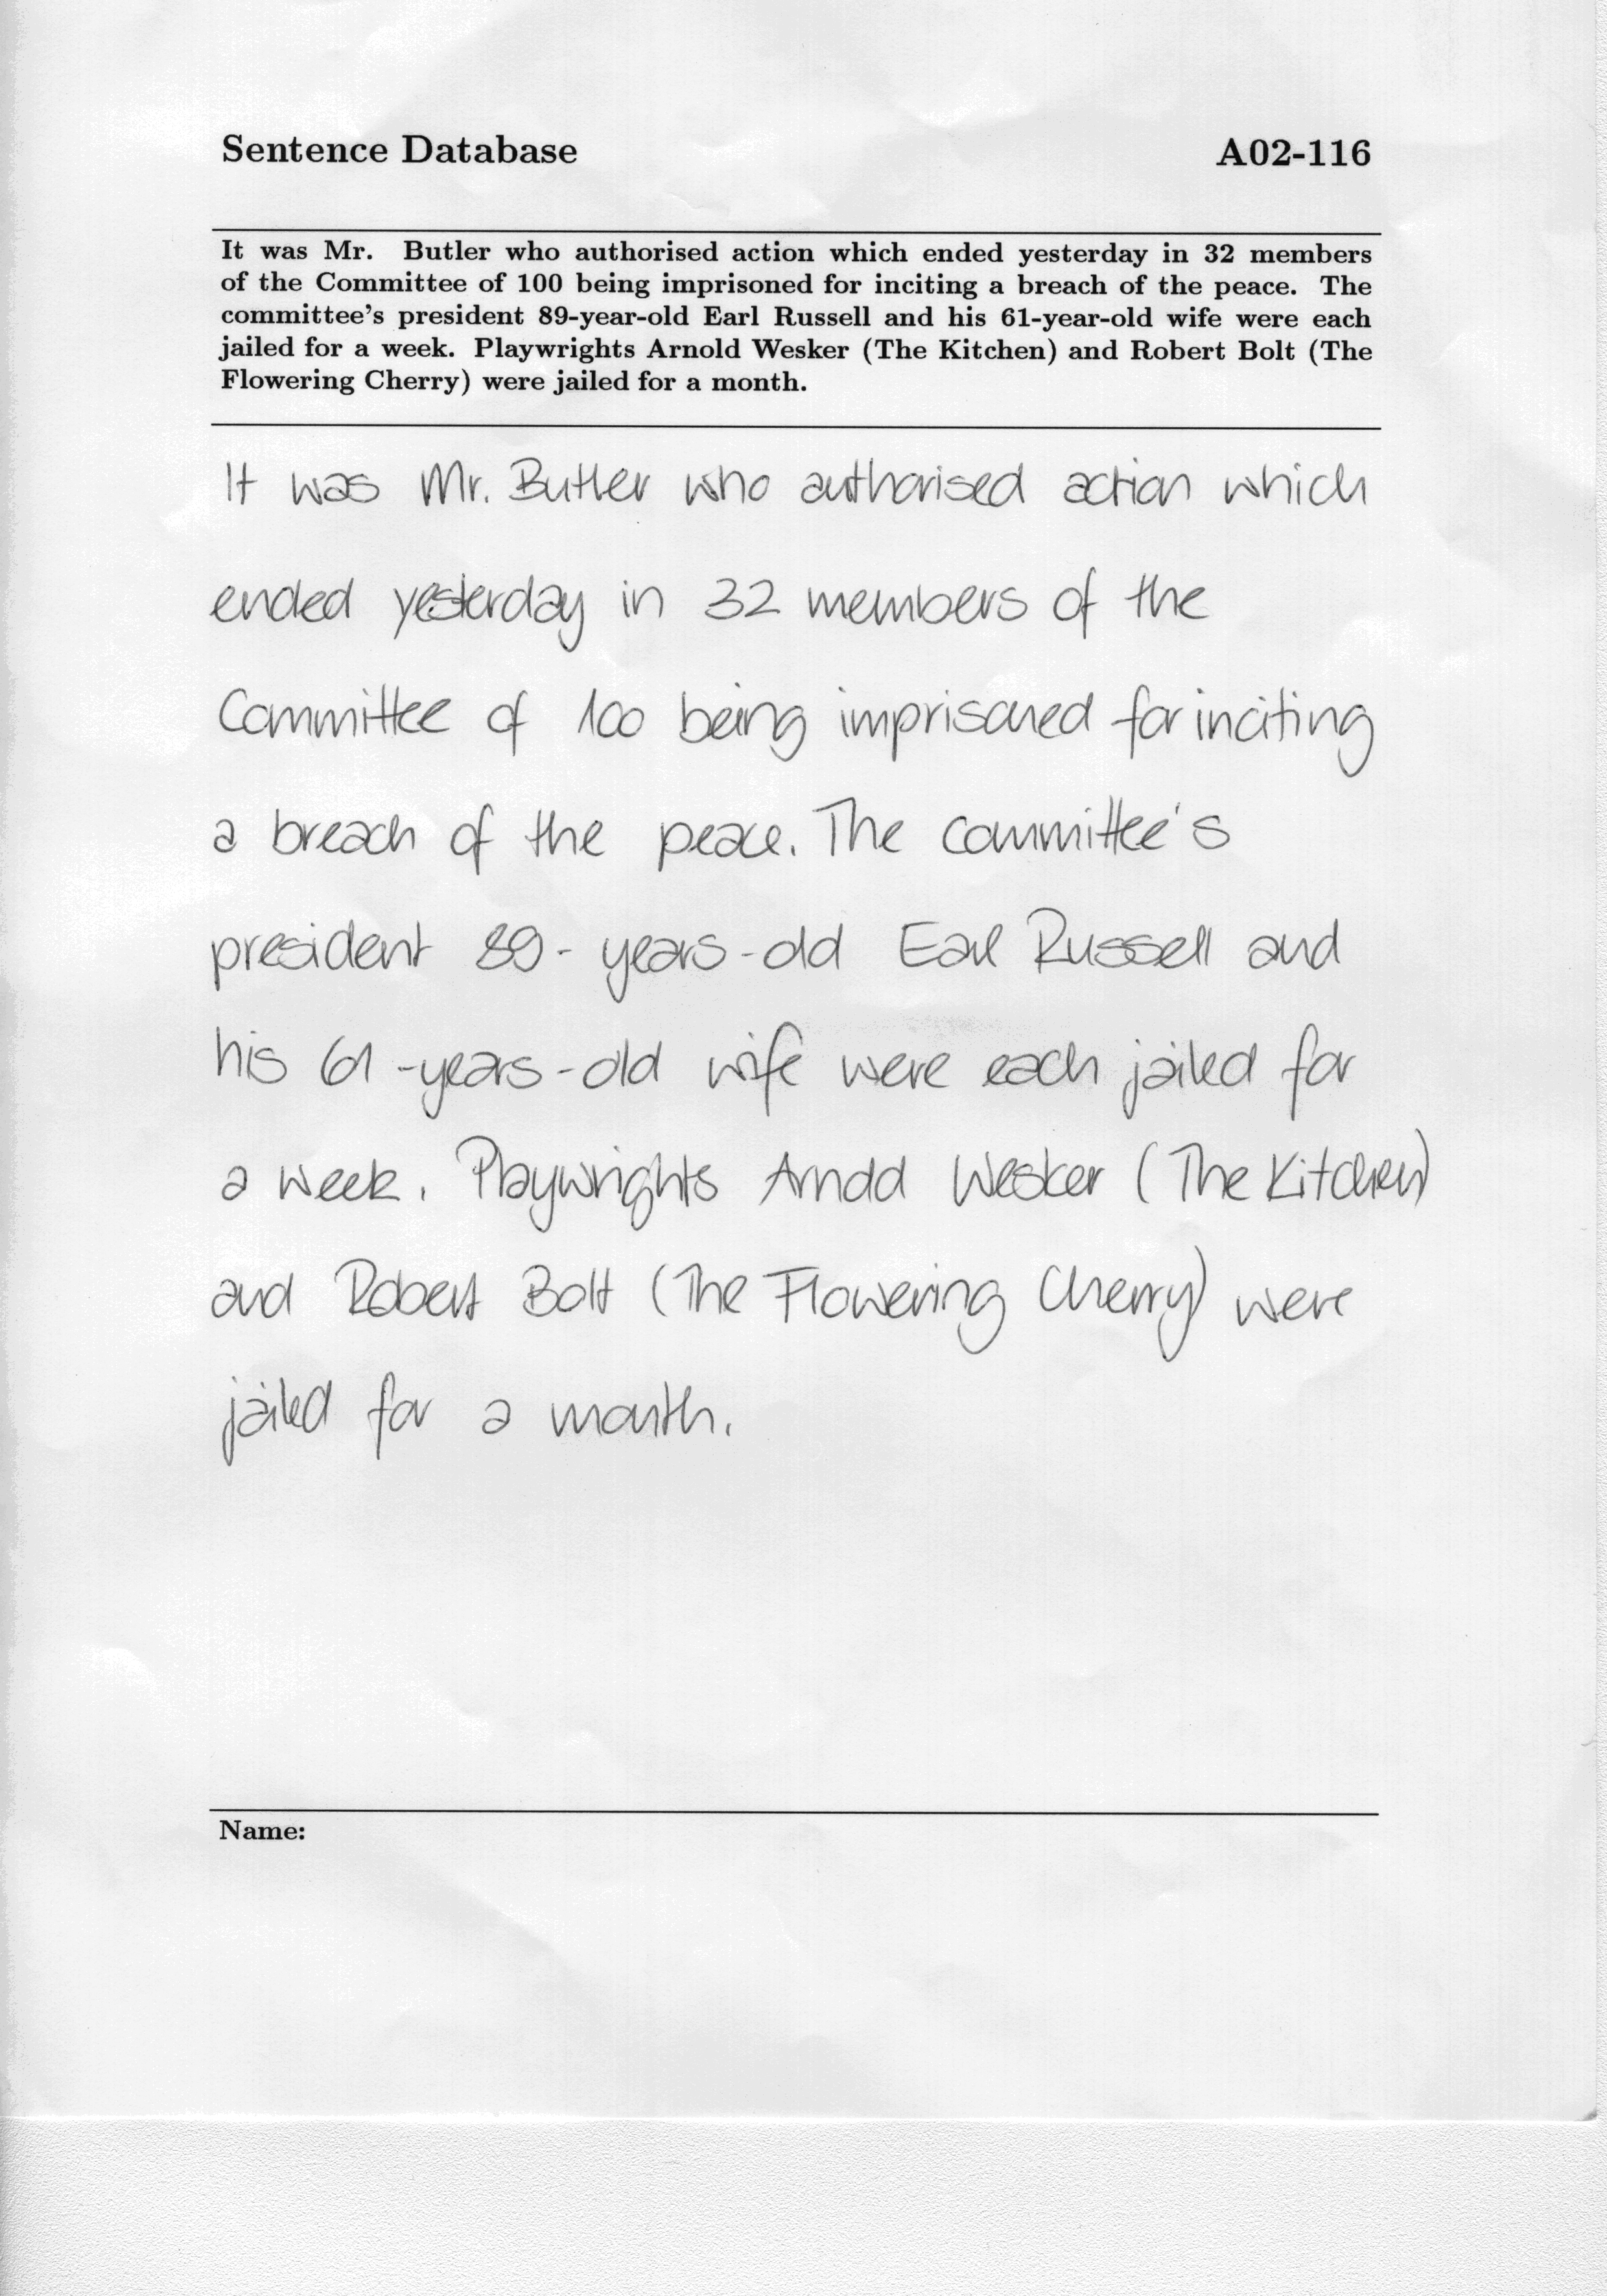 Sentence Database A02-116
It was Mr. Butler who authorised action which ended yesterday in 32 members
of the Committee of 100 being imprisoned for inciting a breach of the peace. The
committee's president 89-year-old Earl Russell and his 61-year-old wife were each
jailed for a week. Playwrights Arnold Wesker (The Kitchen) and Robert Bolt (The
Flowering Cherry) were jailed for a month.
It was Mr. Butler who authorised action which
ended yesterday in 32 members of the
Committee of 100 being imprisoned for inciting
a breach of the peace. The committee's
president 89-years-old Earl Russell and
his 61-years-old wife were each jailed for
a week. Playwrights Arnold Wesker (The Kitchen)
and Robert Bolt (The Flowering Cherry) were
jailed for a month.
Name: